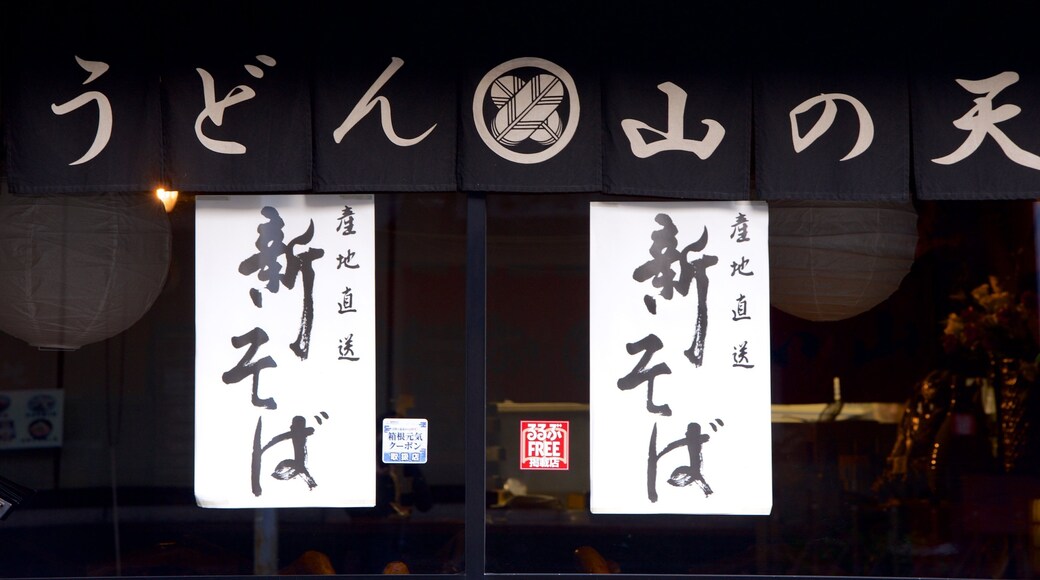 うどん 山の天
産地直送
新そば
産地直送
新そば
箱根元気
クーポン
取扱店
るるぶ
FREE
掲載店